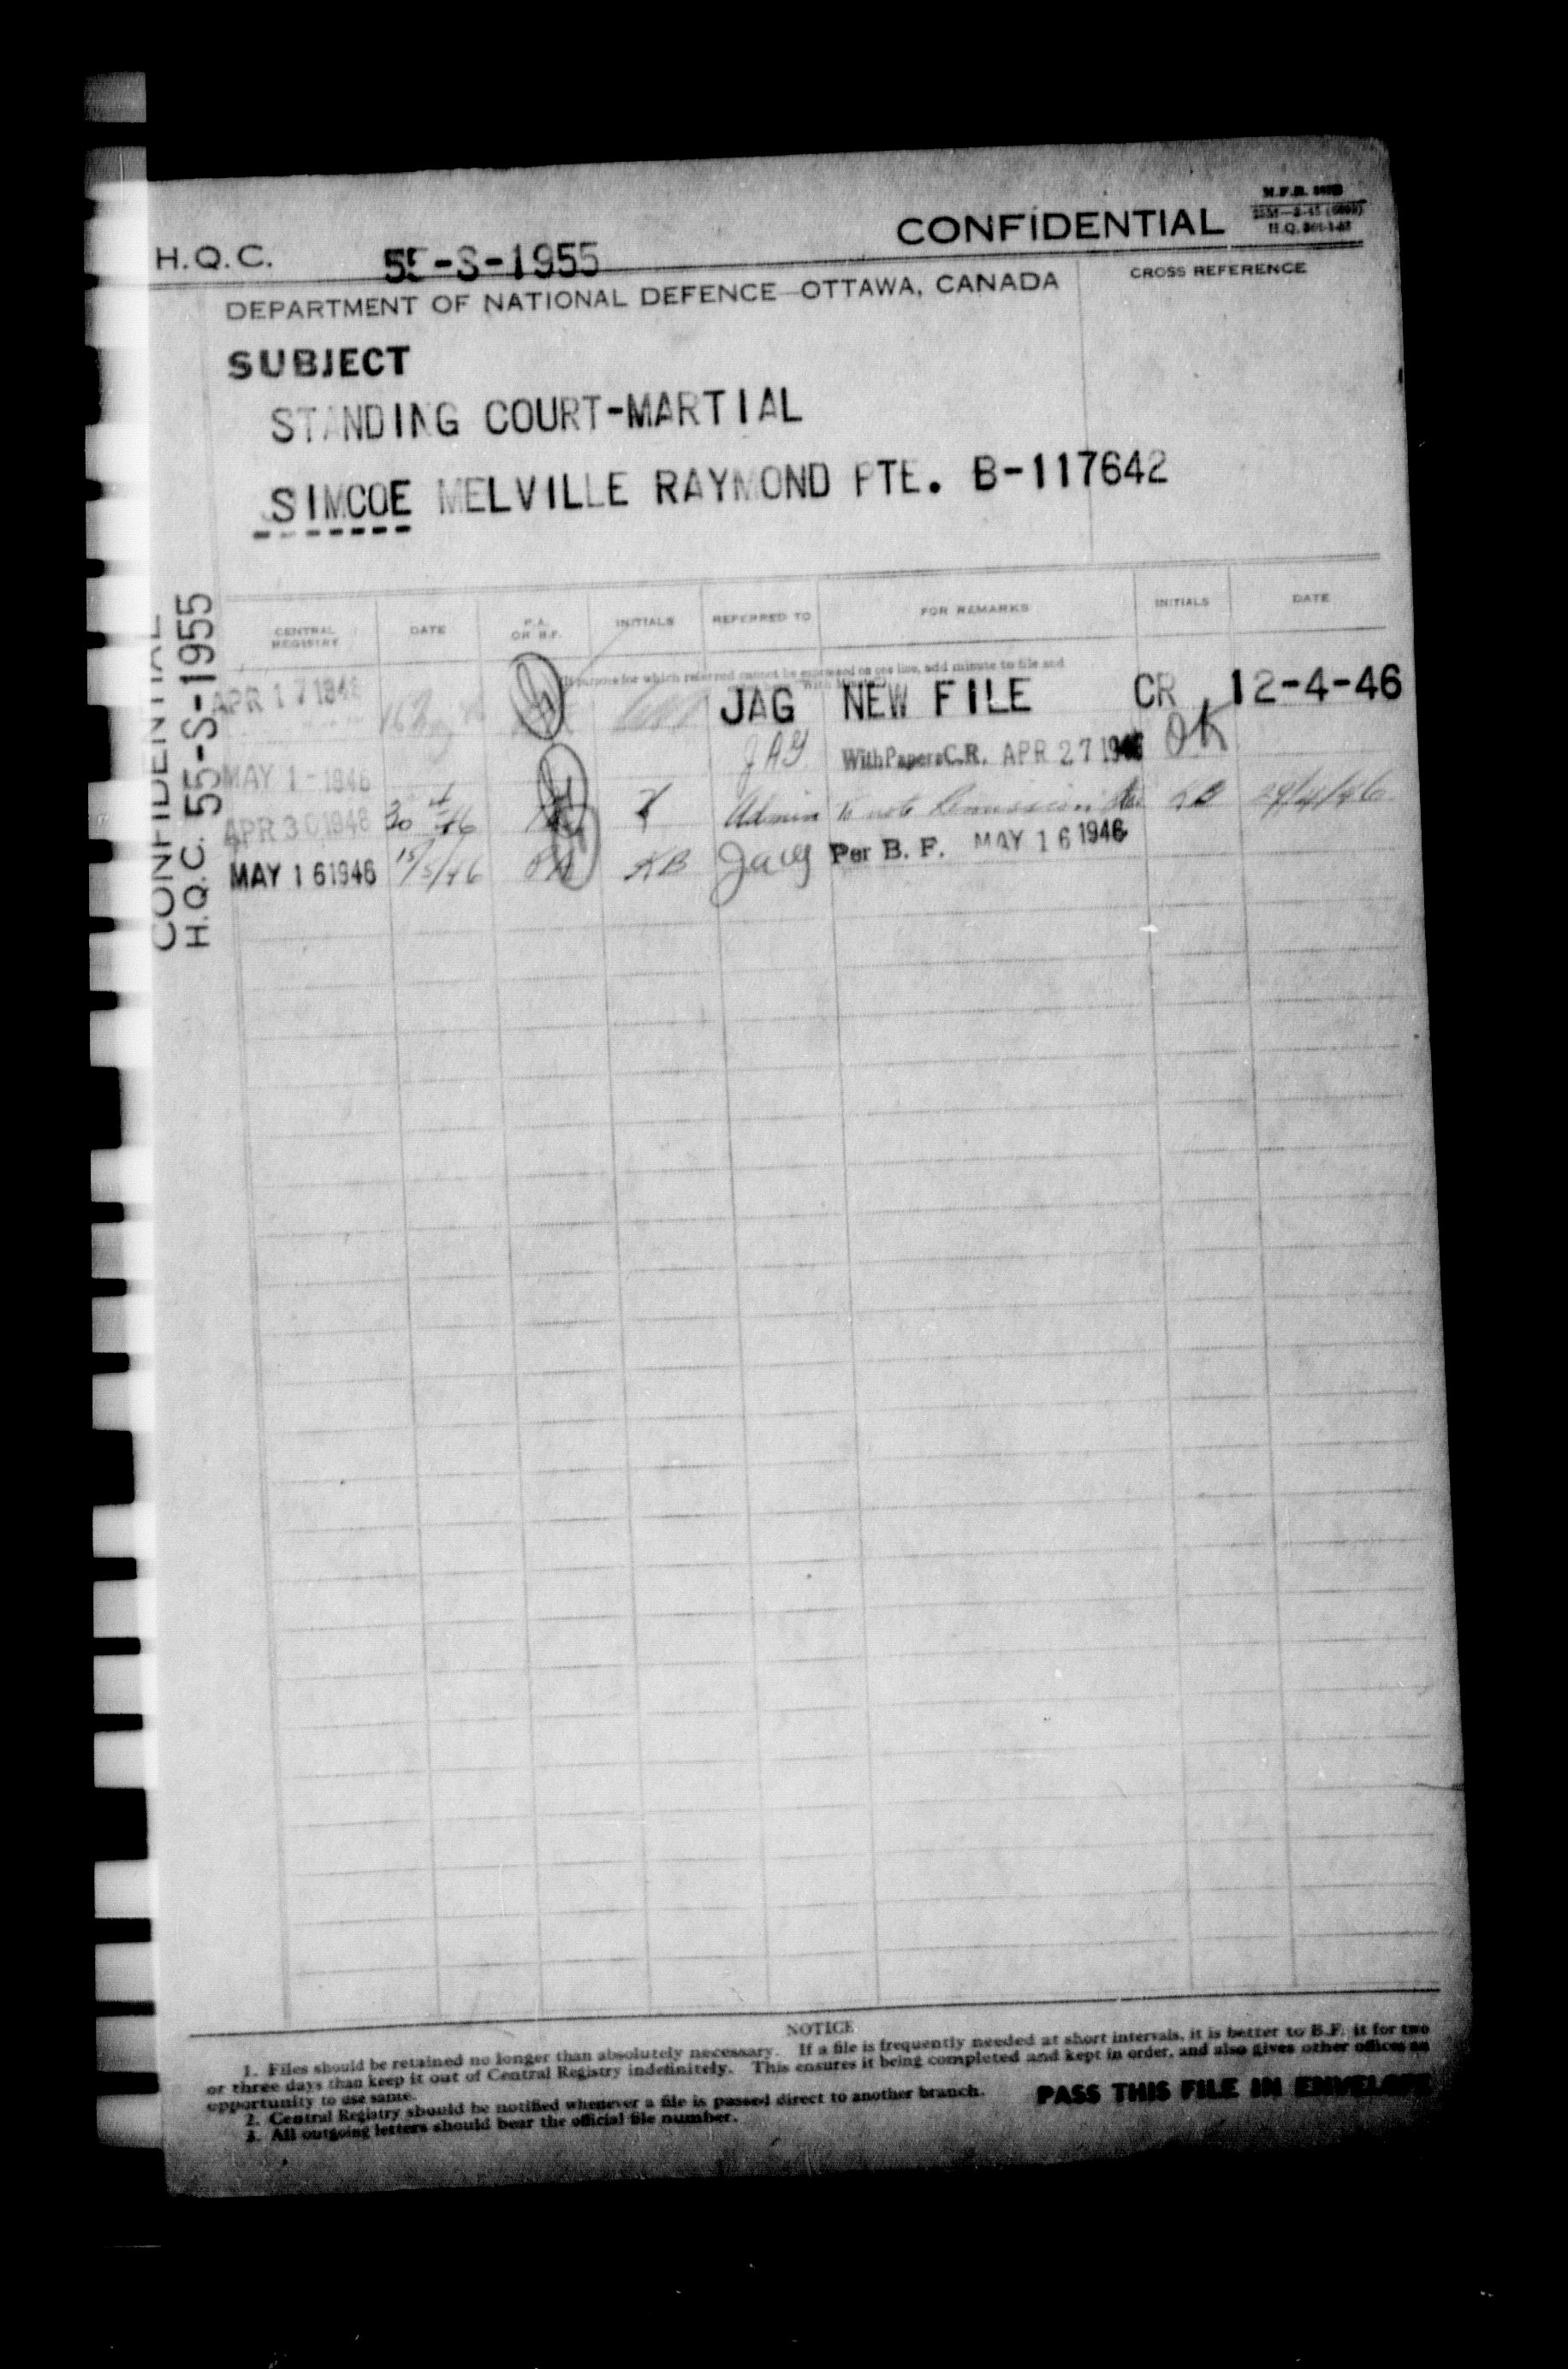 CONFIDENTIAL
H.Q.C. 55-S-1955
DEPARTMENT OF NATIONAL DEFENCE—OTTAWA, CANADA
CROSS REFERENCE
SUBJECT
STANDING COURT-MARTIAL
SIMCOE MELVILLE RAYMOND PTE. B-117642
CONFIDENTIAL
H.Q.C. 55-S-1955
CENTRAL REGISTRY DATE P.A. OR B.F. INITIALS REFERRED TO FOR REMARKS INITIALS DATE
(If purpose for which referred cannot be expressed on one line, add minute to file and
APR 17 1946 JAG NEW FILE CR 12-4-46
JAG With Papers C.R. APR 27 1946 OK
MAY 1 - 1946
APR 30 1946 30/4/46 Admin to note KB 29/4/46
MAY 16 1946 15/5/46 PA KB JAG Per B. F. MAY 16 1946
NOTICE
1. Files should be retained no longer than absolutely necessary. If a file is frequently needed at short intervals, it is better to B.F. it for two
or three days than keep it out of Central Registry indefinitely. This ensures it being completed and kept in order, and also gives other offices an
opportunity to use same.
2. Central Registry should be notified whenever a file is passed direct to another branch.
3. All outgoing letters should bear the official file number.
PASS THIS FILE IN ENVELOPE